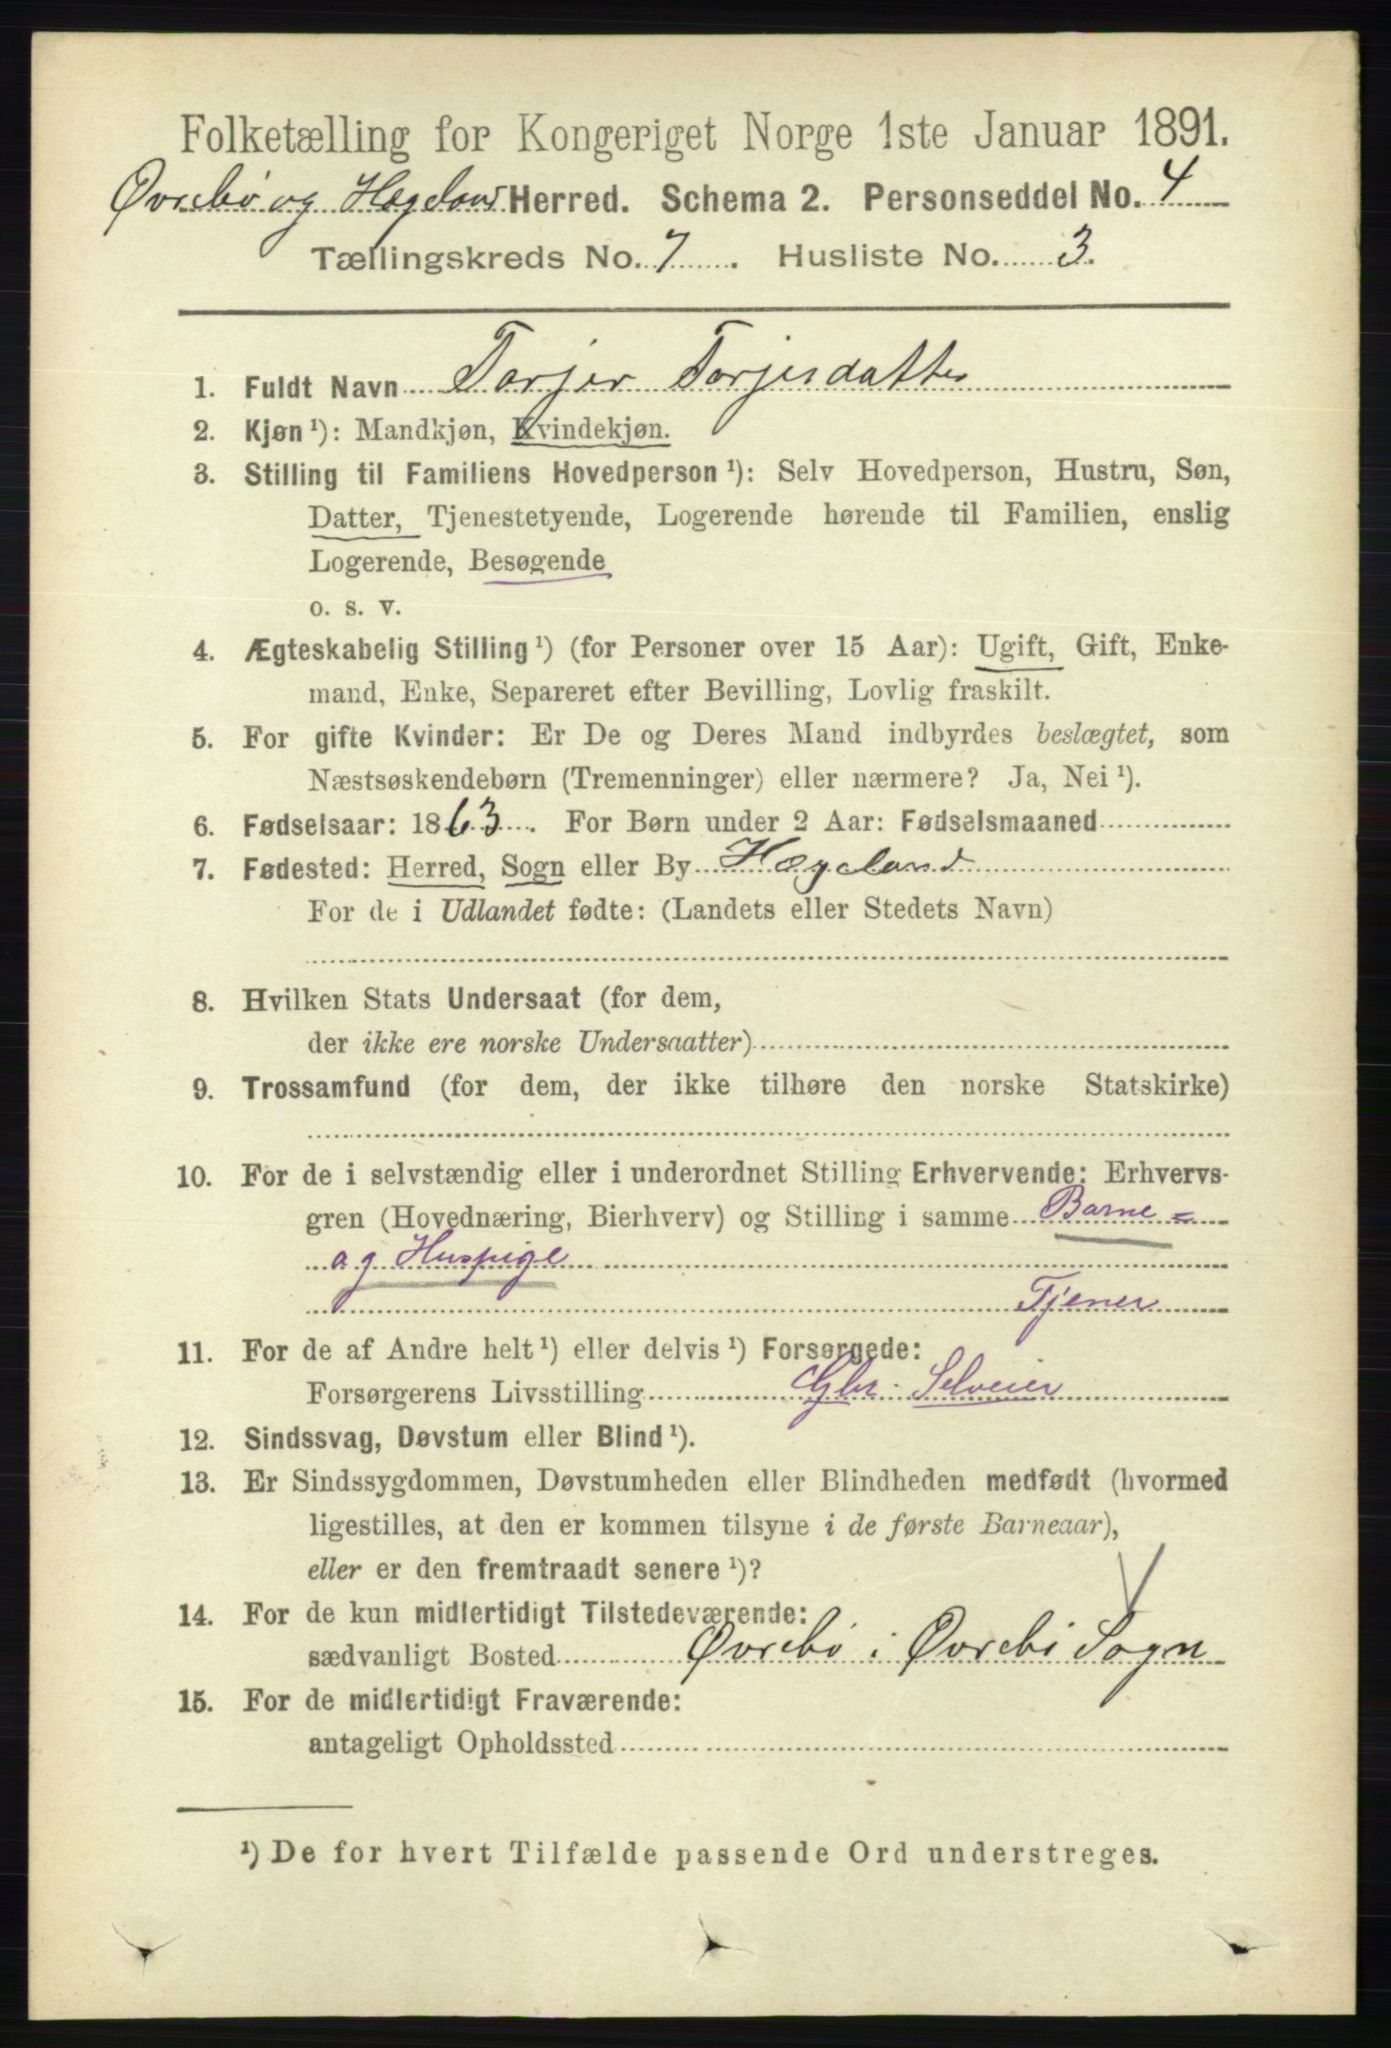 Folketælling for Kongeriget Norge 1ste Januar 1891.
Øvrebø og Hægeland Herred. Schema 2. Personseddel No. 4
Tællingskreds No. 7. Husliste No. 3.
1. Fuldt Navn Torjer Torjersdatter
2. Kjøn ¹): Mandkjøn, Kvindekjøn.
3. Stilling til Familiens Hovedperson ¹): Selv Hovedperson, Hustru, Søn,
Datter, Tjenestetyende, Logerende hørende til Familien, enslig
Logerende, Besøgende
o. s. v.
4. Ægteskabelig Stilling ¹) (for Personer over 15 Aar): Ugift, Gift, Enke-
mand, Enke, Separeret efter Bevilling, Lovlig fraskilt.
5. For gifte Kvinder: Er De og Deres Mand indbyrdes beslægtet, som
Næstsøskendebørn (Tremenninger) eller nærmere? Ja, Nei ¹).
6. Fødselsaar: 1863. For Børn under 2 Aar: Fødselsmaaned
7. Fødested: Herred, Sogn eller By Hægeland
For de i Udlandet fødte: (Landets eller Stedets Navn)
8. Hvilken Stats Undersaat (for dem,
der ikke ere norske Undersaatter)
9. Trossamfund (for dem, der ikke tilhøre den norske Statskirke)
10. For de i selvstændig eller i underordnet Stilling Erhvervende: Erhvervs-
gren (Hovednæring, Bierhverv) og Stilling i samme Barne =
og Huspige
Tjener
11. For de af Andre helt ¹) eller delvis ¹) Forsørgede:
Forsørgerens Livsstilling Gbr. Selveier
12. Sindssvag, Døvstum eller Blind ¹).
13. Er Sindssygdommen, Døvstumheden eller Blindheden medfødt (hvormed
ligestilles, at den er kommen tilsyne i de første Barneaar),
eller er den fremtraadt senere ¹)?
14. For de kun midlertidigt Tilstedeværende:
sædvanligt Bosted Øvrebø i Øvrebø Sogn
15. For de midlertidigt Fraværende:
antageligt Opholdssted
¹) De for hvert Tilfælde passende Ord understreges.